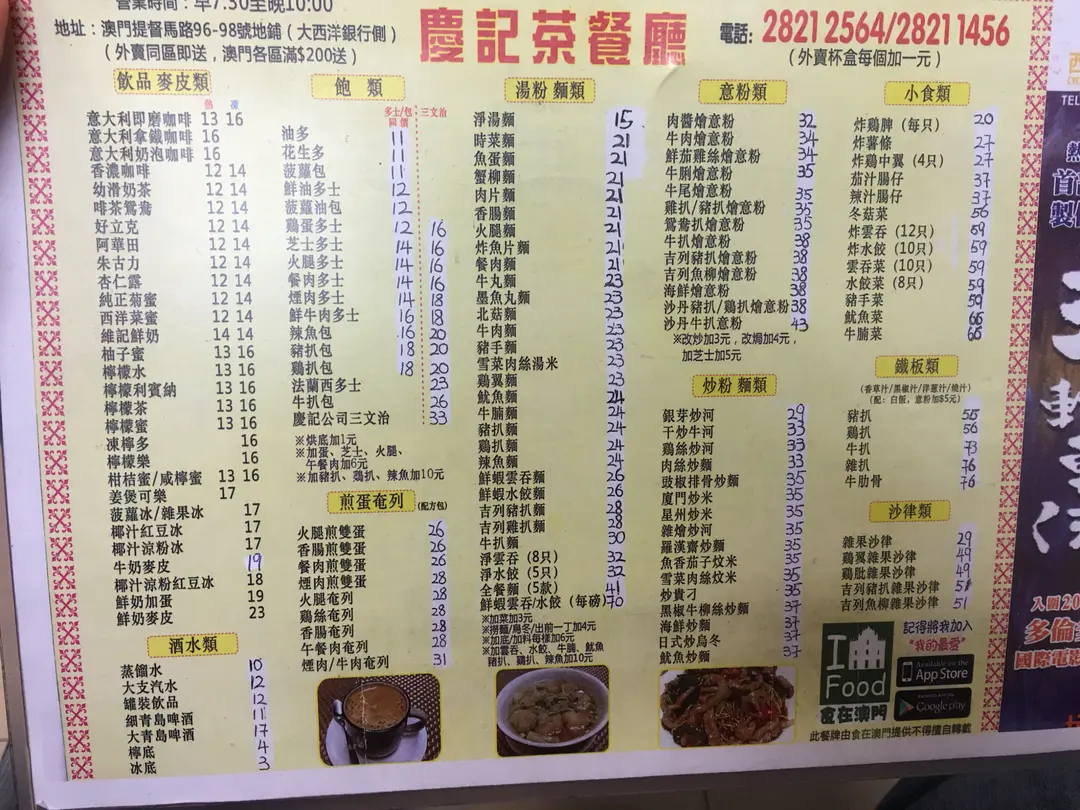 營業時間：早7.30至晚10:00
地址：澳門提督馬路96-98號地鋪（大西洋銀行側）
（外賣同區即送，澳門各區滿$200送）
慶記茶餐廳
電話: 2821 2564/2821 1456
（外賣杯盒每個加一元）
飲品 麥皮類
熱 凍
意大利即磨咖啡 13 16
意大利拿鐵咖啡 16
意大利奶泡咖啡 16
香濃咖啡 12 14
幼滑奶茶 12 14
啡茶鴛鴦 12 14
好立克 12 14
阿華田 12 14
朱古力 12 14
杏仁露 12 14
純正菊蜜 12 14
西洋菜蜜 12 14
維記鮮奶 14 14
柚子蜜 13 16
檸檬水 13 16
檸檬利賓納 13 16
檸檬茶 13 16
檸檬蜜 13 16
凍檸多 16
檸檬樂 16
柑桔蜜/咸檸蜜 13 16
姜煲可樂 17
菠蘿冰/雜果冰 17
椰汁紅豆冰 17
椰汁涼粉冰 17
牛奶麥皮 19
椰汁涼粉紅豆冰 18
鮮奶加蛋 19
鮮奶麥皮 23
酒水類
蒸餾水 10
大支汽水 12
罐裝飲品 12
細青島啤酒 11
大青島啤酒 17
檸底 4
冰底 3
飽類
多士/包 三文治
油多 11
花生多 11
菠蘿包 11
鮮油多士 12
菠蘿油包 12
鷄蛋多士 12 16
芝士多士 14 16
火腿多士 14 16
餐肉多士 14 16
煙肉多士 14 18
鮮牛肉多士 16 18
辣魚包 16 20
豬扒包 18 20
鷄扒包 18 20
法蘭西多士 23
牛扒包 26
慶記公司三文治 33
※烘底加1元
※加蛋、芝士、火腿、
午餐肉加6元
※加豬扒、鷄扒、辣魚加10元
煎蛋奄列 (配方包)
火腿煎雙蛋 26
香腸煎雙蛋 26
餐肉煎雙蛋 26
煙肉煎雙蛋 28
火腿奄列 28
鷄絲奄列 28
香腸奄列 28
午餐肉奄列 28
煙肉/牛肉奄列 31
湯粉 麵類
淨湯麵 15
時菜麵 21
魚蛋麵 21
蟹柳麵 21
肉片麵 21
香腸麵 21
火腿麵 21
炸魚片麵 21
餐肉麵 21
牛丸麵 23
墨魚丸麵 23
北菇麵 23
牛肉麵 23
豬手麵 23
雪菜肉絲湯米 23
鷄翼麵 23
魷魚麵 24
牛腩麵 24
豬扒麵 24
鷄扒麵 24
辣魚麵 24
鮮蝦雲吞麵 26
鮮蝦水餃麵 26
吉列豬扒麵 28
吉列雞扒麵 28
牛扒麵 30
淨雲吞（8只） 32
淨水餃（5只） 32
全餐麵（5款） 41
鮮蝦雲吞/水餃（每磅） 70
※加菜加3元
※撈麵/烏冬/出前一丁加4元
※加底/加料每樣加6元
※加雲吞、水餃、牛腩、魷魚
豬扒、鷄扒、辣魚加10元
意粉類
肉醬燴意粉 32
牛肉燴意粉 34
鮮茄雞絲燴意粉 34
牛脷燴意粉 35
牛尾燴意粉 35
雞扒/豬扒燴意粉 35
鴛鴦扒燴意粉 35
牛扒燴意粉 38
吉列豬扒燴意粉 38
吉列魚柳燴意粉 38
海鮮燴意粉 38
沙丹豬扒/鷄扒燴意粉 38
沙丹牛扒意粉 43
※改炒加3元，改焗加4元，
加芝士加5元
炒粉 麵類
銀芽炒河 29
干炒牛河 33
鷄絲炒河 33
肉絲炒麵 33
豉椒排骨炒麵 35
廈門炒米 35
星州炒米 35
雜燴炒河 35
羅漢齋炒麵 35
魚香茄子炆米 35
雪菜肉絲炆米 35
炒貴刁 35
黑椒牛柳絲炒麵 37
海鮮炒麵 37
日式炒烏冬 37
魷魚炒麵 37
小食類
炸鷄脾（每只） 20
炸薯條 27
炸鷄中翼（4只） 27
茄汁腸仔 37
辣汁腸仔 37
冬菇菜 56
炸雲吞（12只） 59
炸水餃（10只） 59
雲吞菜（10只） 59
水餃菜（8只） 59
豬手菜 59
魷魚菜 66
牛腩菜 66
鐵板類
(香草汁/黑椒汁/洋蔥汁/燒汁)
(配：白飯，意粉加$5元)
豬扒 55
鷄扒 56
牛扒 73
雜扒 76
牛肋骨 76
沙律類
雜果沙律 29
鷄翼雜果沙律 49
鷄肶雜果沙律 49
吉列豬扒雜果沙律 51
吉列魚柳雜果沙律 51
I Food
食在澳門
記得將我加入
"我的最愛"
Available on the App Store
Google play
此餐牌由食在澳門提供不得擅自轉載
TEL
入圍20
多倫
國際電影